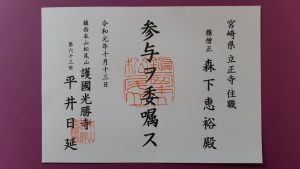 宮崎県 立正寺 住職
権僧正 森下恵裕殿
参与ヲ委嘱ス
令和元年十月十三日
鎮西本山松尾山
護國光勝寺
第六十三世
平井日延